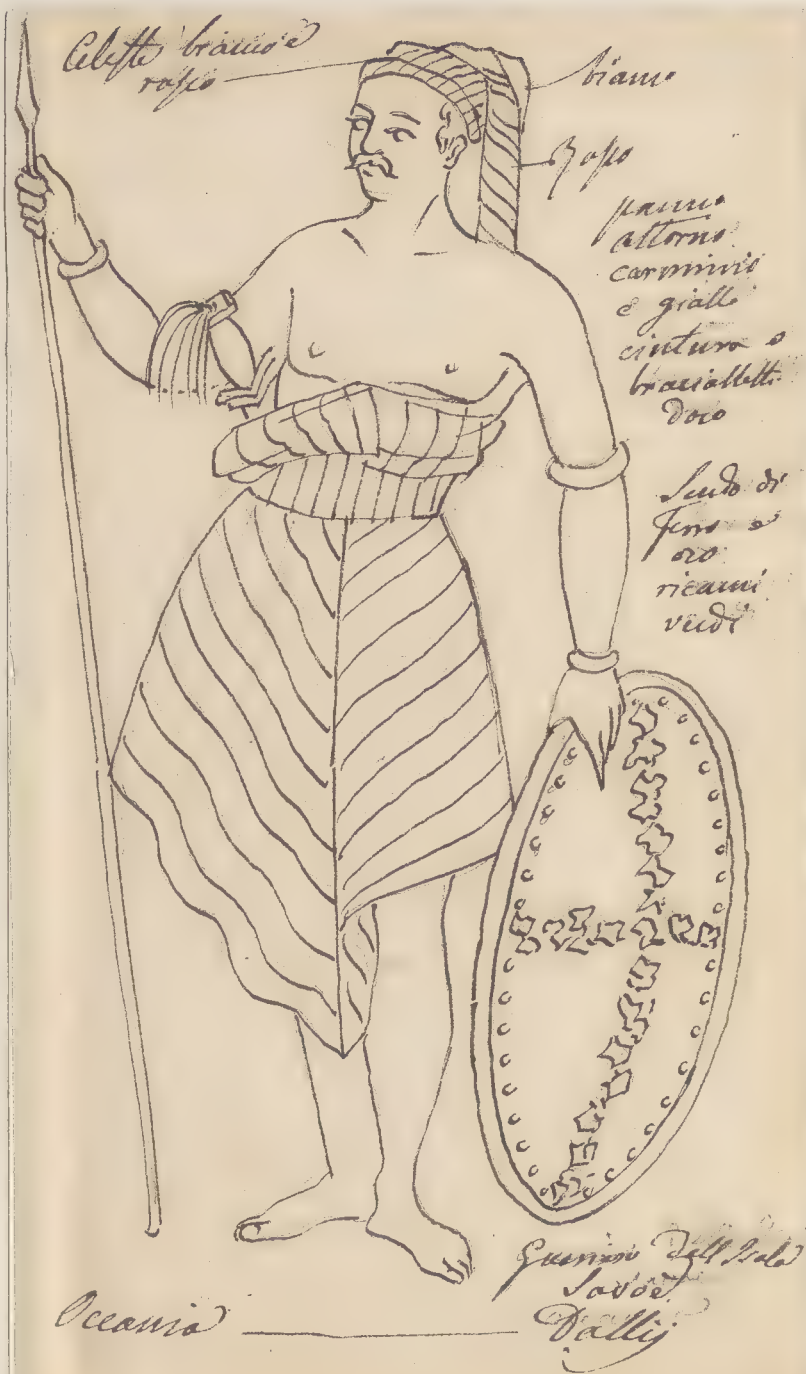 Celeste bianco e
rosso
bianco
Rosso
panno
attorno
carminio
e giallo
cintura e
braccialetti
d'oro
Scudo di
ferro e
oro
ricami
verdi
Guerriero dell Isola
Savoe
Oceania